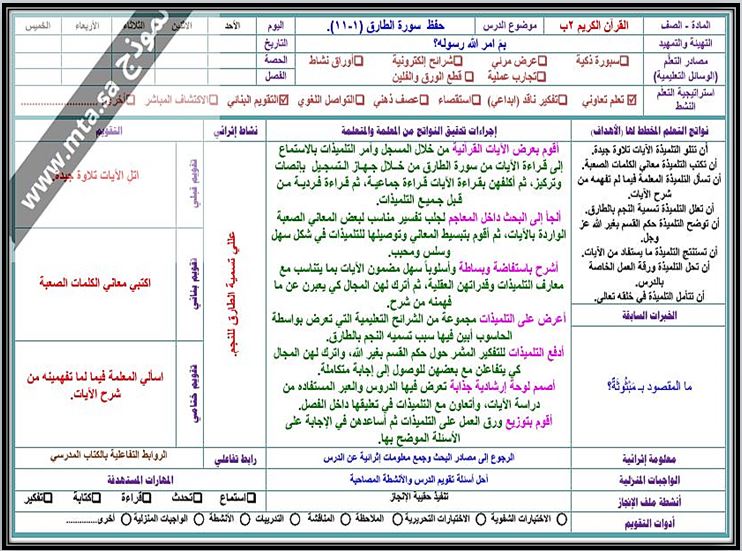 المادة - الصف
القرآن الكريم ٢ب
موضوع الدرس
حفظ سورة الطارق (١-١١).
اليوم
الأحد
الاثنين
الثلاثاء
الأربعاء
الخميس
التهيئة والتمهيد
بمَ أمر الله رسوله؟
التاريخ
مصادر التعلّم
(الوسائل التعليمية)
سبورة ذكية
عرض مرئي
شرائح إلكترونية
أوراق نشاط
تجارب عملية
قطع الورق والفلين
الحصة
الفصل
استراتيجية التعلم
النشط
تعلم تعاوني
تفكير ناقد (إبداعي)
استقصاء
عصف ذهني
التواصل اللغوي
التقويم البنائي
الاكتشاف المباشر
أخرى
نواتج التعلم المخطط لها (الأهداف)
إجراءات تحقيق النواتج من المعلمة والمتعلمة
نشاط إثرائي
التقويم
أن تتلو التلميذة الآيات تلاوة جيدة.
أن تكتب التلميذة معاني الكلمات الصعبة.
أن تسأل التلميذة المعلمة فيما لم تفهمه من
شرح الآيات.
أن تعلل التلميذة تسمية النجم بالطارق.
أن توضح التلميذة حكم القسم بغير الله عز
وجل.
أن تستنتج التلميذة ما يستفاد من الآيات.
أن تحل التلميذة ورقة العمل الخاصة
بالدرس.
أن تتأمل التلميذة في خلقه تعالى.
الخبرات السابقة
ما المقصود بـ مَبْثُوثَةٌ؟
أقوم بعرض الآيات القرآنية من خلال المسجل وأمر التلميذات بالاستماع
إلى قراءة الآيات من سورة الطارق من خلال جهاز التسجيل بإنصات
وتركيز، ثم أكلفهن بقراءة الآيات قراءة جماعية، ثم قراءة فردية من
قبل جميع التلميذات.
ألجأ إلى البحث داخل المعاجم لجلب تفسير مناسب لبعض المعاني الصعبة
الواردة بالآيات، ثم أقوم بتبسيط المعاني وتوصيلها للتلميذات في شكل سهل
وسلس ومحبب.
أشرح باستفاضة وبساطة وأسلوباً سهل مضمون الآيات بما يتناسب مع
معارف التلميذات وقدراتهن العقلية، ثم أترك لهن المجال كي يعبرن عن ما
فهمنه من شرح.
أعرض على التلميذات مجموعة من الشرائح التعليمية التي تعرض بواسطة
الحاسوب أبين فيها سبب تسميه النجم بالطارق.
أدفع التلميذات للتفكير المثمر حول حكم القسم بغير الله، واترك لهن المجال
كي يتفاعلن مع بعضهن للوصول إلى إجابة متكاملة.
أصمم لوحة إرشادية جذابة تعرض فيها الدروس والعبر المستفاده من
دراسة الآيات، وأتعاون مع التلميذات في تعليقها داخل الفصل.
أقوم بتوزيع ورق العمل على التلميذات ثم أساعدهن في الإجابة على
الأسئلة الموضح بها.
عللي تسمية الطارق للنجم.
تقويم قبلي
اتل الآيات تلاوة جيدة.
تقويم بنائي
اكتبي معاني الكلمات الصعبة
تقويم ختامي
اسألي المعلمة فيما لما تفهمينه من
شرح الآيات.
معلومة إثرائية
الرجوع إلى مصادر البحث وجمع معلومات إثرائية عن الدرس
رابط تفاعلي
الروابط التفاعلية بالكتاب المدرسي
الواجبات المنزلية
أحل أسئلة تقويم الدرس والأنشطة المصاحبة
المهارات المستهدفة
أنشطة ملف الإنجاز
تنفيذ حقيبة الإنجاز
استماع
تحدث
قراءة
كتابة
تفكير
أدوات التقويم
الاختبارات الشفوية
الاختبارات التحريرية
الملاحظة
المناقشة
التدريبات
الأنشطة
الواجبات المنزلية
أخرى..............
نموذج www.mta.sa